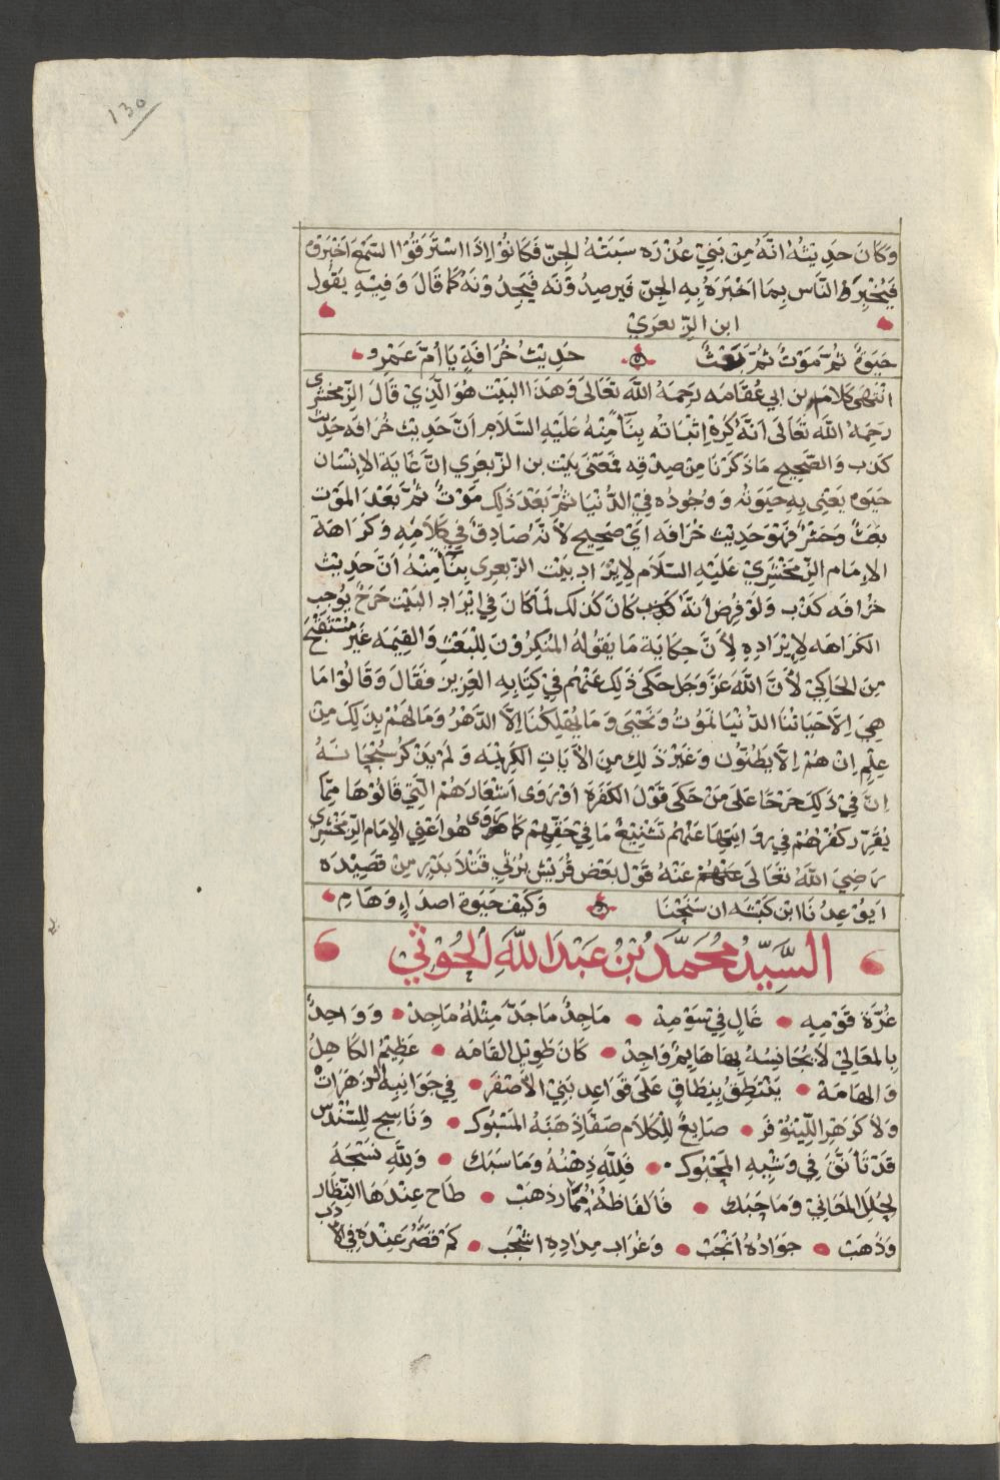 130
وَكَانَ حَدِيثُهُ انَّهُ مِنْ بَنِيْ عُذْرَه سَبَتْهُ الجِنّ فَكَانُوْا اِذَا اسْتَرَقُوْا السَّمْعَ اَخْبَرَوْه
فَيُخْبِرُ النَّاسَ بِمَا اَخْبَرَهُ بِهِ الجِنّ فَيَرصِدُوْنَه فَيَجِدُوْنَهُ كَمَا قَالَ وَفِيْهِ يَقُول
ابن الزِّبعرَيْ
حَيَوةٌ ثُمَّ مَوْتٌ ثُمَّ بَعْثٌ حَدِيْثُ خُرَافَةٍ يَا اُمَّ عَمْرو
انْتَهَى كَلَامُ بن ابي عُقَامَه رَحِمَهُ اللَّهُ تَعَالَى وَهَذَا البَيْت هُوَ الَّذِيْ قَالَ الزَّمَخْشَرِى
رَحِمَهُ اللَّهُ تَعَالَى اَنَّهُ كَرِهَ اِثْبَاتَه بِنَأً مِنْهُ عَلَيْهِ السَّلَامِ اَنَّ حَدِيْث خُرَافَه حَدِيْث
كَذِب وَالصَّحِيح مَا ذَكَرْنَا مِنْ صِدْقِه فَمَعْنَى بَيْت بن الزِّبعرَي اِنَّ غَايَة الاِنْسَان
حَيَوه يَعْنِي بِهِ حَيَوتَهُ وَ وُجُودُه فِيْ الدُّنْيَا ثُمَّ بَعْدَ ذَلِكَ مَوْتٌ ثُمَّ بَعْدَ المَوْت
بَعْثٌ وَحَشْرٌ فَهُوَ حَدِيْث خُرَافَه اَيْ صَحِيح لأَنَّهُ صَادِقٌ فِي كَلَامِهِ وَكَرَاهَة
الاِمَام الزَّمَخْشَرِيّ عَلَيْهِ السَّلَامِ لِايْرَادِ بَيْت الزِّبعرى بِنَأً مِنْهُ اَنَّ حَدِيْثُ
خُرَافَه كَذِب وَلَوْ فُرِضَ اَنَّهُ كَذِب كَانَ كَذلك لَمَا كَانَ فِي ايْرَادِ البَيْت حَرَجٌ يُوجِب
الكَرَاهَه لِايْرَادِهِ لِأَنَّ حِكَايَة مَا يَقُولُهُ المُنْكِرُوْنَ لِلْبَعْثِ وَالقِيَمَه غَيْر مُسْتَقْبَح
مِنَ الحَاكِيْ لأَنَّ اللَّهَ عَزَّ وَجَل حَكَى ذَلِكَ عَنْهُم فِيْ كِتَابِهِ العَزِيْزِ فَقَالَ وَقَالُوْا مَا
هِيَ اِلَّا حَيَاتُنَا الدُّنْيَا نَمُوْتُ وَنَحْيَى وَمَا يُهْلِكُنَا اِلَّا الدَّهْرُ وَمَا لَهُمْ بِذَلِكَ مِنْ
عِلْمٍ اِنْ هُمْ اِلَّا يَظُنُّون وَغَيْر ذَلِكَ مِنَ الْآيَاتِ الكَرِيْمَه وَلَمْ يَذْكُرْ سُبْحَانَهُ
اِنَّ فِيْ ذَلِكَ حَرَجًا عَلَى مَنْ حَكَى قَوْلَ الكَفَرَة اوْ رَوَى اَشْعَارَهُمْ الَّتِيْ قَالُوْهَا مِمَّا
يُقَرِّر كُفْرَهُمْ فِي رِوَايَتِهَا عَنْهُم تَشْنِيْعٌ مَا فِيْ حَقِّهِمْ كَمَا رَوَى هُوَ اَعْنِي الاِمَام الزَّمَخْشَرِى
رَضِيَ اللَّهُ تَعَالَى عَنْهُمْ عَنْهُ قَوْل بَعْض قُرَيْش يَرْثِي قَتْلَا بَدْرٍ مِنْ قَصِيْدَه
اَيُوْعِدُنَا ابْن كَبْشَه ان سَنَحْيَا وَكَيْفَ حَيَوة اصدَاءٍ وَهَامِ
السَّيِّدُ مُحَمَّدُ بْنُ عَبْدِ اللَّهِ الحُوْثِي
غُرَّة قَوْمِه غَالٍ فِيْ سَوْمِهْ مَاجِدٌ مَا جَدَّ مِثْلُهُ مَاجِدْ وَوَاحِدٌ
بِالمَعَالِيْ لَا يُجَانِسُهُ بِهَا هَايِمٌ وَاجِدْ كَانَ طَوِيْل القَامَه عَظِيْمُ الكَاهِلُ
وَالهَامَة يَنْتَطِقُ بِنِطَاقٍ عَلَى قَوَاعِد بَنِيْ الأَصْفَر فِيْ جَوَانِبِهِ الزَّهَرَات
وَلَا كَزَهْر اللِّيْنُوْفَر صَايِغٌ لِلْكَلَام صَفَّا ذَهَبَهُ المَسْبُوك وَنَاسِج لِلسُّنْدُس
قَدْ تَأنَّقَ فِي وَشْيِهِ المَحْبُوك فَلِلَّهِ ذِهْنُهُ وَمَا سَبَك وَلِلَّهِ نَسْجُهُ
لِحُلَلِ المَعَانِيْ وَمَا حَبَك فَالفَاظُهُ مِمَّا ذهَبْ طَاح عِنْدَهَا النِّظَار
وَذَهَبْ جَوَادُهُ اَنْجَبْ وَغُرَاب مِدَادِهِ اشْجَب كَمْ قَصَّرَ عِنْدَهُ فِيْ الأَدَب